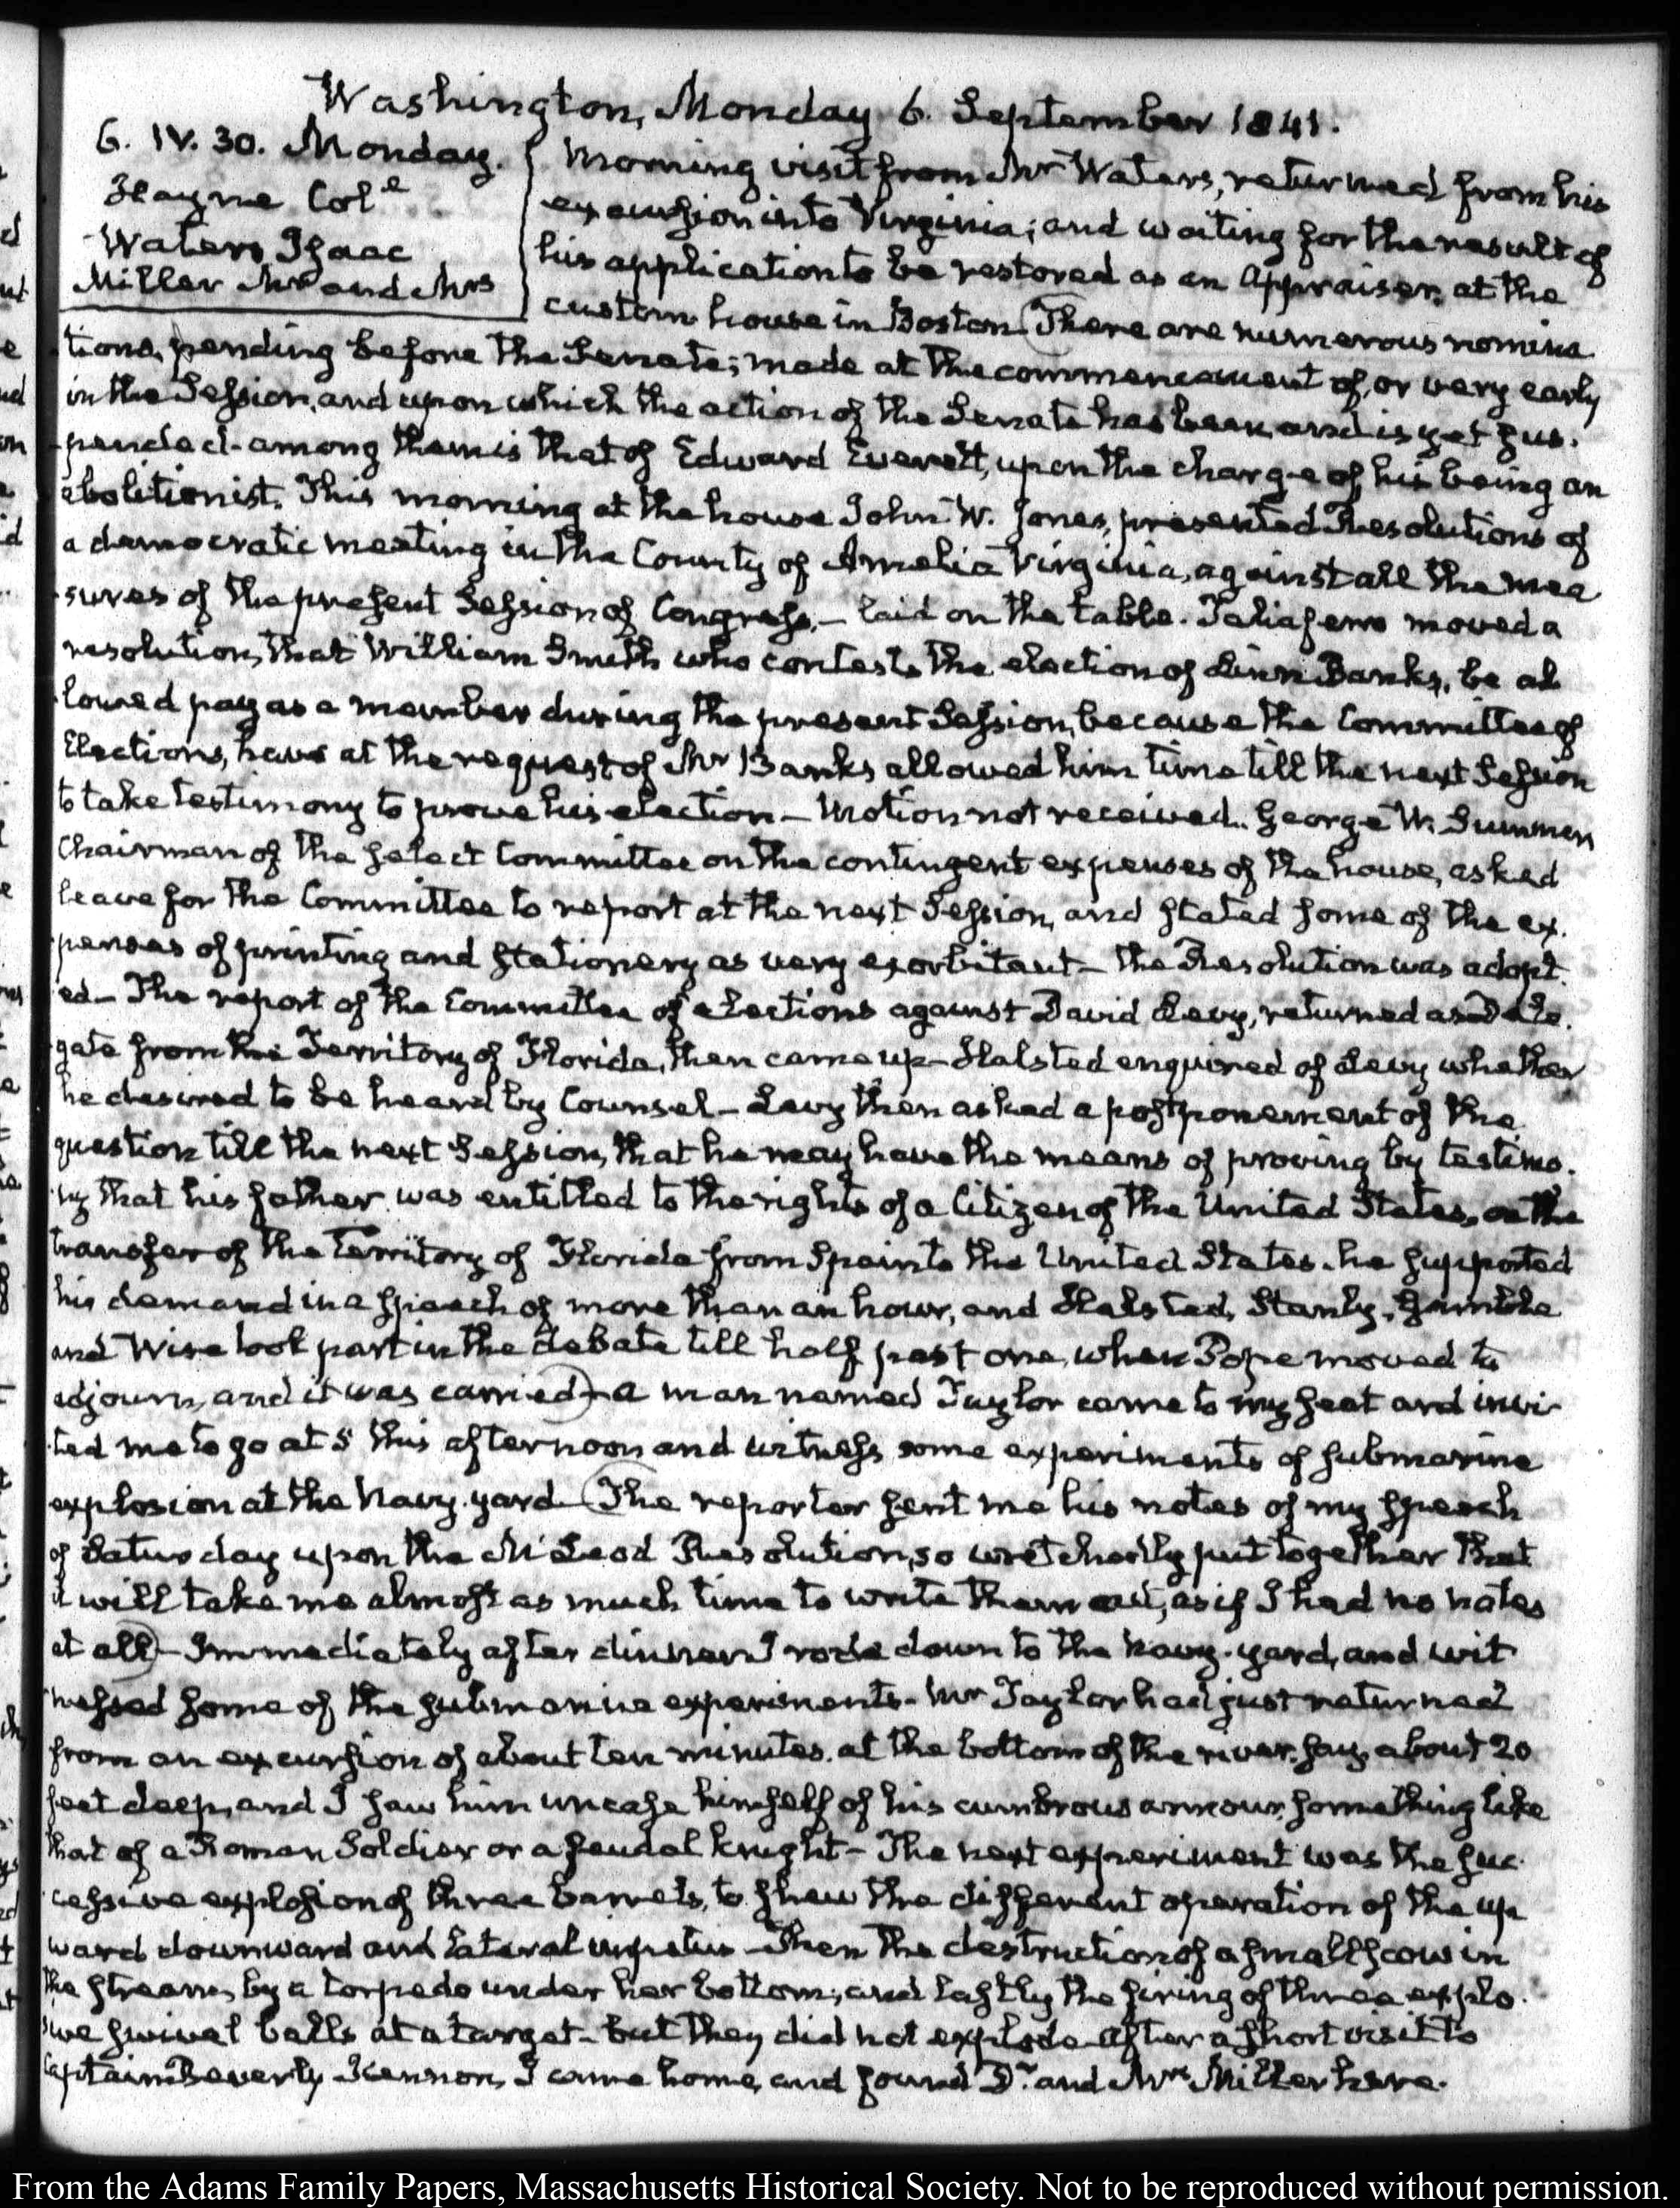 Washington, Monday 6. September 1841.
6. IV. 30. Monday.
Hayne Col.e
Waters Isaac
Miller Mr and Mrs
Morning visit from Mr Waters, returned from his
excursion into Virginia; and waiting for the result of
his application to be restored as an Appraiser, at the
custom house in Boston (There are numerous nomina
tions, pending before the Senate; made at the commencement of, or very early
in the Session, and upon which the action of the Senate has been, and is yet sus-
pended - among them is that of Edward Everett, upon the charge of his being an
abolitionist. This morning at the house John W. Jones, presented Resolutions of
a democratic meeting in the County of Amelia Virginia, against all the mea
sures of the present Session of Congress, - laid on the table. Taliaferro moved a
resolution, that William Smith who contests the election of Linn Banks, be al
lowed pay as a member during the present Session, because the Committee of
Elections, have at the request of Mr Banks allowed him time till the next Session
to take testimony to prove his election - Motion not received. George W. Summers
Chairman of the select Committee on the contingent expenses of the house, asked
leave for the Committee to report at the next Session, and stated some of the ex-
penses of printing and stationery as very exorbitant - the Resolution was adopt-
ed - The report of the Committee of elections against David Levy, returned as Dele-
gate from the Territory of Florida, then came up - Halsted enquired of Levy whether
he desired to be heard by Counsel - Levy then asked a postponement of the
question till the next Session, that he may have the means of proving by testimo-
ny that his father was entitled to the rights of a Citizen of the United States, on the
transfer of the Territory of Florida from Spain to the United States. he supported
his demand in a speech of more than an hour, and Halsted, Stanly, Gamble
and Wise took part in the debate till half past one, when Pope moved to
adjourn, and it was carried) - a man named Taylor came to my seat and invi-
ted me to go at 5 this afternoon and witness some experiments of submarine
explosion at the Navy-yard - (The reporter sent me his notes of my speech
of Saturday upon the McLeod Resolution, so wretchedly put together that
it will take me almost as much time to write them out, as if I had no notes
at all) - Immediately after dinner I rode down to the Navy-yard, and wit
nessed some of the submarine experiments - Mr Taylor had just returned
from an excursion of about ten minutes, at the bottom of the river, say, about 20
feet deep, and I saw him uncase himself of his cumbrous armour, something like
that of a Roman Soldier or a feudal knight - The next experiment was the suc-
cessive explosion of three barrels, to shew the different operation of the up
ward downward and lateral impetus - Then the destruction of a small scow in
the stream, by a torpedo under her bottom; and lastly the firing of three explo-
sive swivel balls at a target - but they did not explode - After a short visit to
Captain Beverly Kennon, I came home, and found Dr. and Mrs Miller here.
From the Adams Family Papers, Massachusetts Historical Society. Not to be reproduced without permission.